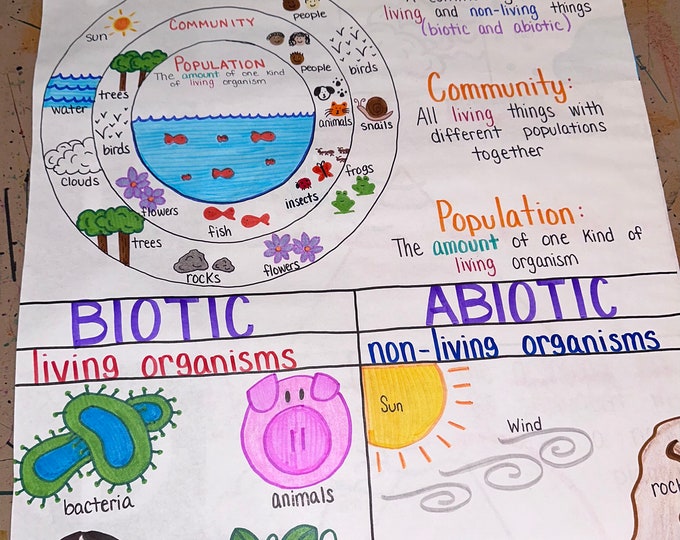 living and non-living things
(biotic and abiotic)
Community:
All living things with
different populations
together
Population:
The amount of one kind of
living organism
COMMUNITY
POPULATION
The amount of one kind
of living organism
sun
people
people
birds
water
trees
birds
animals
snails
clouds
frogs
insects
flowers
fish
trees
rocks
flowers
BIOTIC
ABIOTIC
living organisms
non-living organisms
bacteria
animals
Sun
Wind
rock